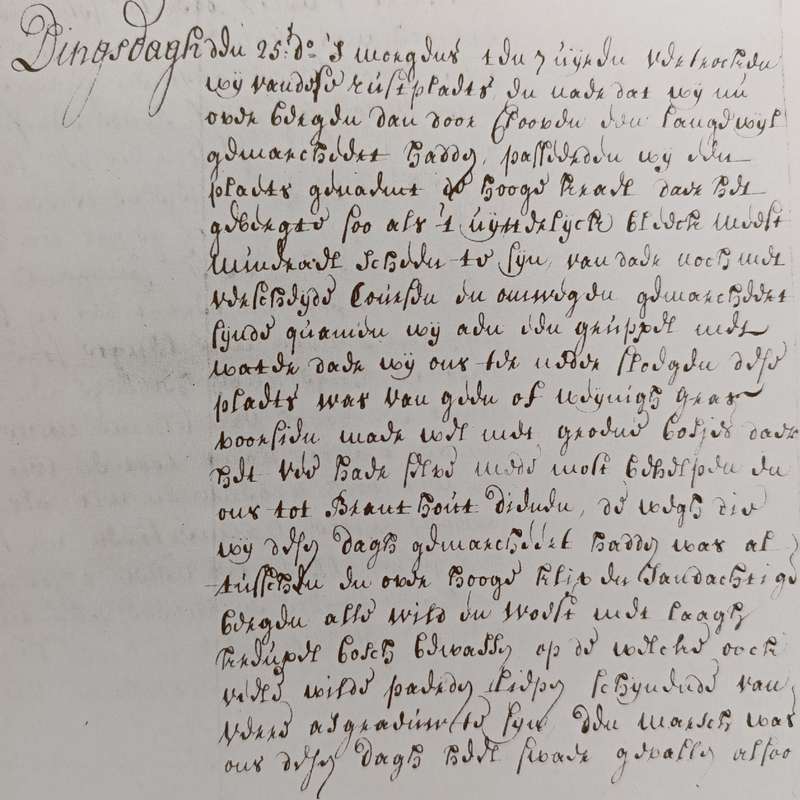 Dingsdagh den 25.' do 's morgens ten 7 uijren vertrocken
wij van dese rustplaets, en naer dat wij nu
over bergen dan door Clooven een lange wijl
gemarcheert hadden, passeerden wij een
plaets genaemt de hooge kraal daer het
gebergte soo als 't uijtterlijck bleeck meest
mineraal scheen te sijn, van daer noch met
verscheijde Coursen en omwegen gemarcheert
sijnde quamen wij aen een gruppel met
water daer wij ons ter neder sloegen dese
plaets was van geen of weijnigh gras
voorsien maer wel met groene bosjes daer
het vee haer selve mede most behelpen en
ons tot Brant hout dienden, de wegh die
wij desen dagh gemarcheert hadden was al
tusschen en over hooge klip en Sandachtige
bergen alle wild en woest met laagh
kreupel bosch bewassen op de welcke oock
veele wilde paerden liepen schijnende van
veere asgraauw te sijn den marsch was
ons desen dagh heel swaer gevallen alsoo